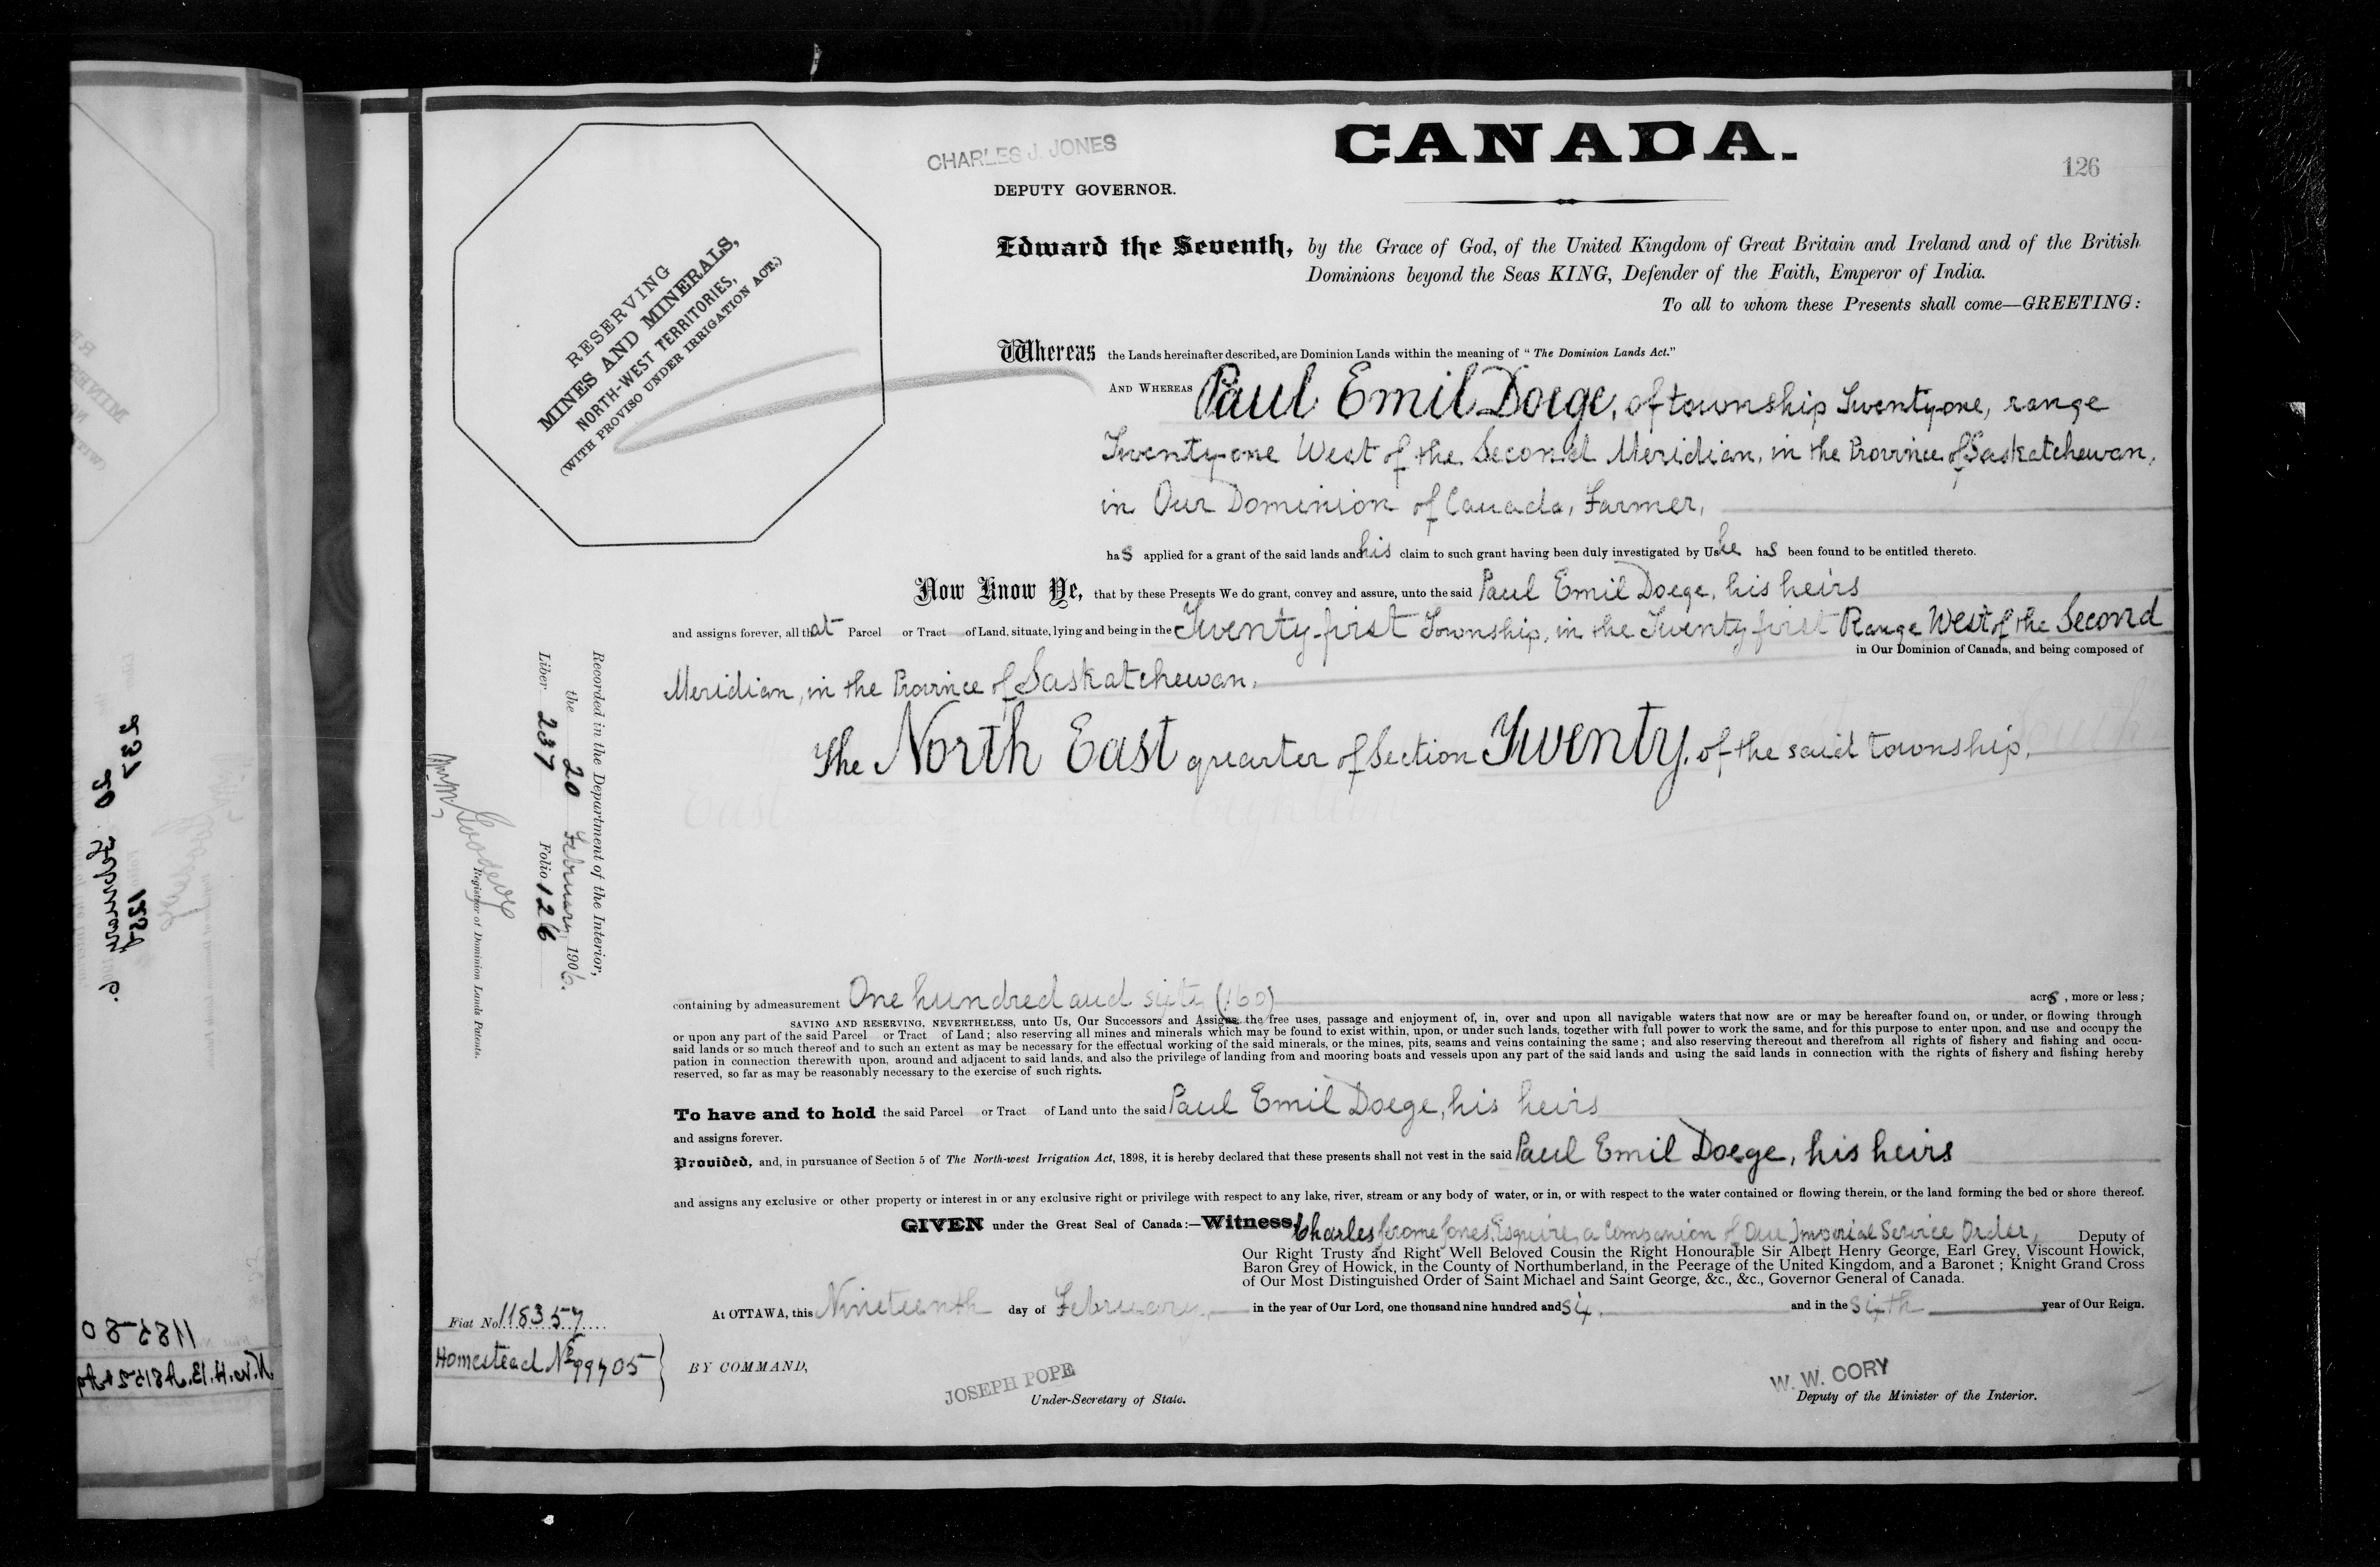 CHARLES J. JONES
CANADA.
126
DEPUTY GOVERNOR.
RESERVING
MINES AND MINERALS,
NORTH-WEST TERRITORIES,
(WITH PROVISO UNDER IRRIGATION ACT.)
Edward the Seventh, by the Grace of God, of the United Kingdom of Great Britain and Ireland and of the British
Dominions beyond the Seas KING, Defender of the Faith, Emperor of India.
To all to whom these Presents shall come—GREETING:
Whereas the Lands hereinafter described, are Dominion Lands within the meaning of "The Dominion Lands Act."
AND WHEREAS Paul Emil Doege, of township Twenty-one, range
Twenty-one West of the Second Meridian, in the Province of Saskatchewan,
in Our Dominion of Canada, Farmer,
has applied for a grant of the said lands and his claim to such grant having been duly investigated by Us he has been found to be entitled thereto.
Now Know Ye, that by these Presents We do grant, convey and assure, unto the said Paul Emil Doege, his heirs
and assigns forever, all that Parcel or Tract of Land, situate, lying and being in the Twenty-first Township, in the Twenty first Range West of the Second
in Our Dominion of Canada, and being composed of
Meridian, in the Province of Saskatchewan.
The North East quarter of Section Twenty, of the said township,
Recorded in the Department of the Interior,
the 20 February 1906.
Liber 237 Folio 126
Registrar of Dominion Lands Patents.
containing by admeasurement One hundred and sixty (160) acres, more or less;
SAVING AND RESERVING, NEVERTHELESS, unto Us, Our Successors and Assigns, the free uses, passage and enjoyment of, in, over and upon all navigable waters that now are or may be hereafter found on, or under, or flowing through
or upon any part of the said Parcel or Tract of Land; also reserving all mines and minerals which may be found to exist within, upon, or under such lands, together with full power to work the same, and for this purpose to enter upon, and use and occupy the
said lands or so much thereof and to such an extent as may be necessary for the effectual working of the said minerals, or the mines, pits, seams and veins containing the same; and also reserving thereout and therefrom all rights of fishery and fishing and occu-
pation in connection therewith upon, around and adjacent to said lands, and also the privilege of landing from and mooring boats and vessels upon any part of the said lands and using the said lands in connection with the rights of fishery and fishing hereby
reserved, so far as may be reasonably necessary to the exercise of such rights.
To have and to hold the said Parcel or Tract of Land unto the said Paul Emil Doege, his heirs
and assigns forever.
Provided, and, in pursuance of Section 5 of The North-west Irrigation Act, 1898, it is hereby declared that these presents shall not vest in the said Paul Emil Doege, his heirs
and assigns any exclusive or other property or interest in or any exclusive right or privilege with respect to any lake, river, stream or any body of water, or in, or with respect to the water contained or flowing therein, or the land forming the bed or shore thereof.
GIVEN under the Great Seal of Canada:—Witness, Charles Jerome Jones, Esquire, a Companion of Our Imperial Service Order, Deputy of
Our Right Trusty and Right Well Beloved Cousin the Right Honourable Sir Albert Henry George, Earl Grey, Viscount Howick,
Baron Grey of Howick, in the County of Northumberland, in the Peerage of the United Kingdom, and a Baronet; Knight Grand Cross
of Our Most Distinguished Order of Saint Michael and Saint George, &c., &c., Governor General of Canada.
At OTTAWA, this Nineteenth day of February, in the year of Our Lord, one thousand nine hundred and six, and in the sixth year of Our Reign.
Fiat No. 118357
Homestead No 99705
BY COMMAND,
JOSEPH POPE
Under-Secretary of State.
W. W. CORY
Deputy of the Minister of the Interior.